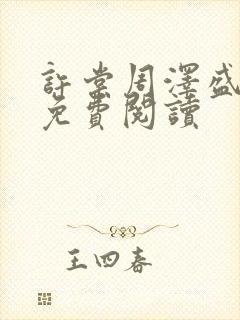 許棠周澤盛
免費閱讀
王四春